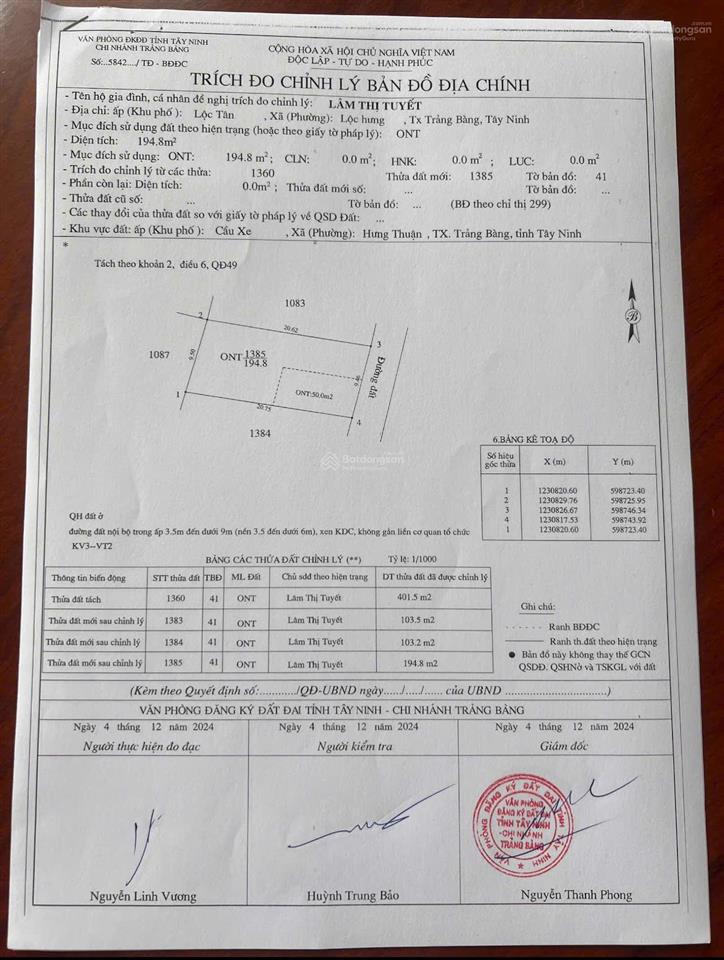 VĂN PHÒNG ĐKĐD TỈNH TÂY NINH
CHI NHÁNH TRẢNG BÀNG
Số:..5842..../ TĐ - BĐĐC
CỘNG HÒA XÃ HỘI CHỦ NGHĨA VIỆT NAM
ĐỘC LẬP - TỰ DO - HẠNH PHÚC
TRÍCH ĐO CHỈNH LÝ BẢN ĐỒ ĐỊA CHÍNH
- Tên hộ gia đình, cá nhân đề nghị trích đo chỉnh lý: LÂM THỊ TUYẾT
- Địa chỉ: ấp (Khu phố ): Lộc Tân , Xã (Phường): Lộc hưng , Tx Trảng Bàng, Tây Ninh
- Mục đích sử dụng đất theo hiện trạng (hoặc theo giấy tờ pháp lý): ONT
- Diện tích: 194.8m²
- Mục đích sử dụng: ONT: 194.8 m²; CLN: 0.0 m²; HNK: 0.0 m² ; LUC: 0.0 m²
- Trích đo chỉnh lý từ các thửa: 1360 Thửa đất mới: 1385 Tờ bản đồ: 41
- Phần còn lại: Diện tích: 0.0m² ; Thửa đất mới số: ... Tờ bản đồ: ...
- Thửa đất cũ số: ... Tờ bản đồ: ... (BĐ theo chỉ thị 299)
- Các thay đổi của thửa đất so với giấy tờ pháp lý về QSD Đất: ...
- Khu vực đất: ấp (Khu phố ): Cầu Xe , Xã (Phường): Hưng Thuận , TX. Trảng Bàng, tỉnh Tây Ninh
*
Tách theo khoản 2, điều 6, QĐ49
1083
2
20.62
3
1087
9.50
ONT 1385
194.8
9.46
Đường đất
ONT:50.0m2
1
20.75
4
1384
B
Batdongsan
6.BẢNG KÊ TOẠ ĐỘ
Số hiệu góc thửa X (m) Y (m)
1 1230820.60 598723.40
2 1230829.76 598725.95
3 1230826.67 598746.34
4 1230817.53 598743.92
1 1230820.60 598723.40
QH đất ở
đường đất nội bộ trong ấp 3.5m đến dưới 9m (nền 3.5 đến dưới 6m), xen KDC, không gắn liền cơ quan tổ chức
KV3--VT2
BẢNG CÁC THỬA ĐẤT CHỈNH LÝ (**) Tỷ lệ: 1/1000
Thông tin biến động STT thửa đất TBĐ ML Đất Chủ sdđ theo hiện trạng DT thửa đất đã được chỉnh lý
Thửa đất tách 1360 41 ONT Lâm Thị Tuyết 401.5 m2
Thửa đất mới sau chỉnh lý 1383 41 ONT Lâm Thị Tuyết 103.5 m2
Thửa đất mới sau chỉnh lý 1384 41 ONT Lâm Thị Tuyết 103.2 m2
Thửa đất mới sau chỉnh lý 1385 41 ONT Lâm Thị Tuyết 194.8 m2
Ghi chú:
Ranh BĐĐC
Ranh th.đất theo hiện trạng
● Bản đồ này không thay thế GCN
QSDĐ. QSHNở và TSKGL với đất
(Kèm theo Quyết định số:............/QĐ-UBND ngày...../...../...... của UBND .........................)
VĂN PHÒNG ĐĂNG KÝ ĐẤT ĐAI TỈNH TÂY NINH - CHI NHÁNH TRẢNG BÀNG
Ngày 4 tháng 12 năm 2024 Ngày 4 tháng 12 năm 2024 Ngày 4 tháng 12 năm 2024
Người thực hiện đo đạc Người kiểm tra Giám đốc
VĂN PHÒNG ĐĂNG KÝ ĐẤT ĐAI TỈNH TÂY NINH
VĂN PHÒNG
ĐĂNG KÝ ĐẤT ĐAI
TỈNH TÂY NINH
-CHI NHÁNH
TRẢNG BÀNG
Nguyễn Linh Vương Huỳnh Trung Bảo Nguyễn Thanh Phong